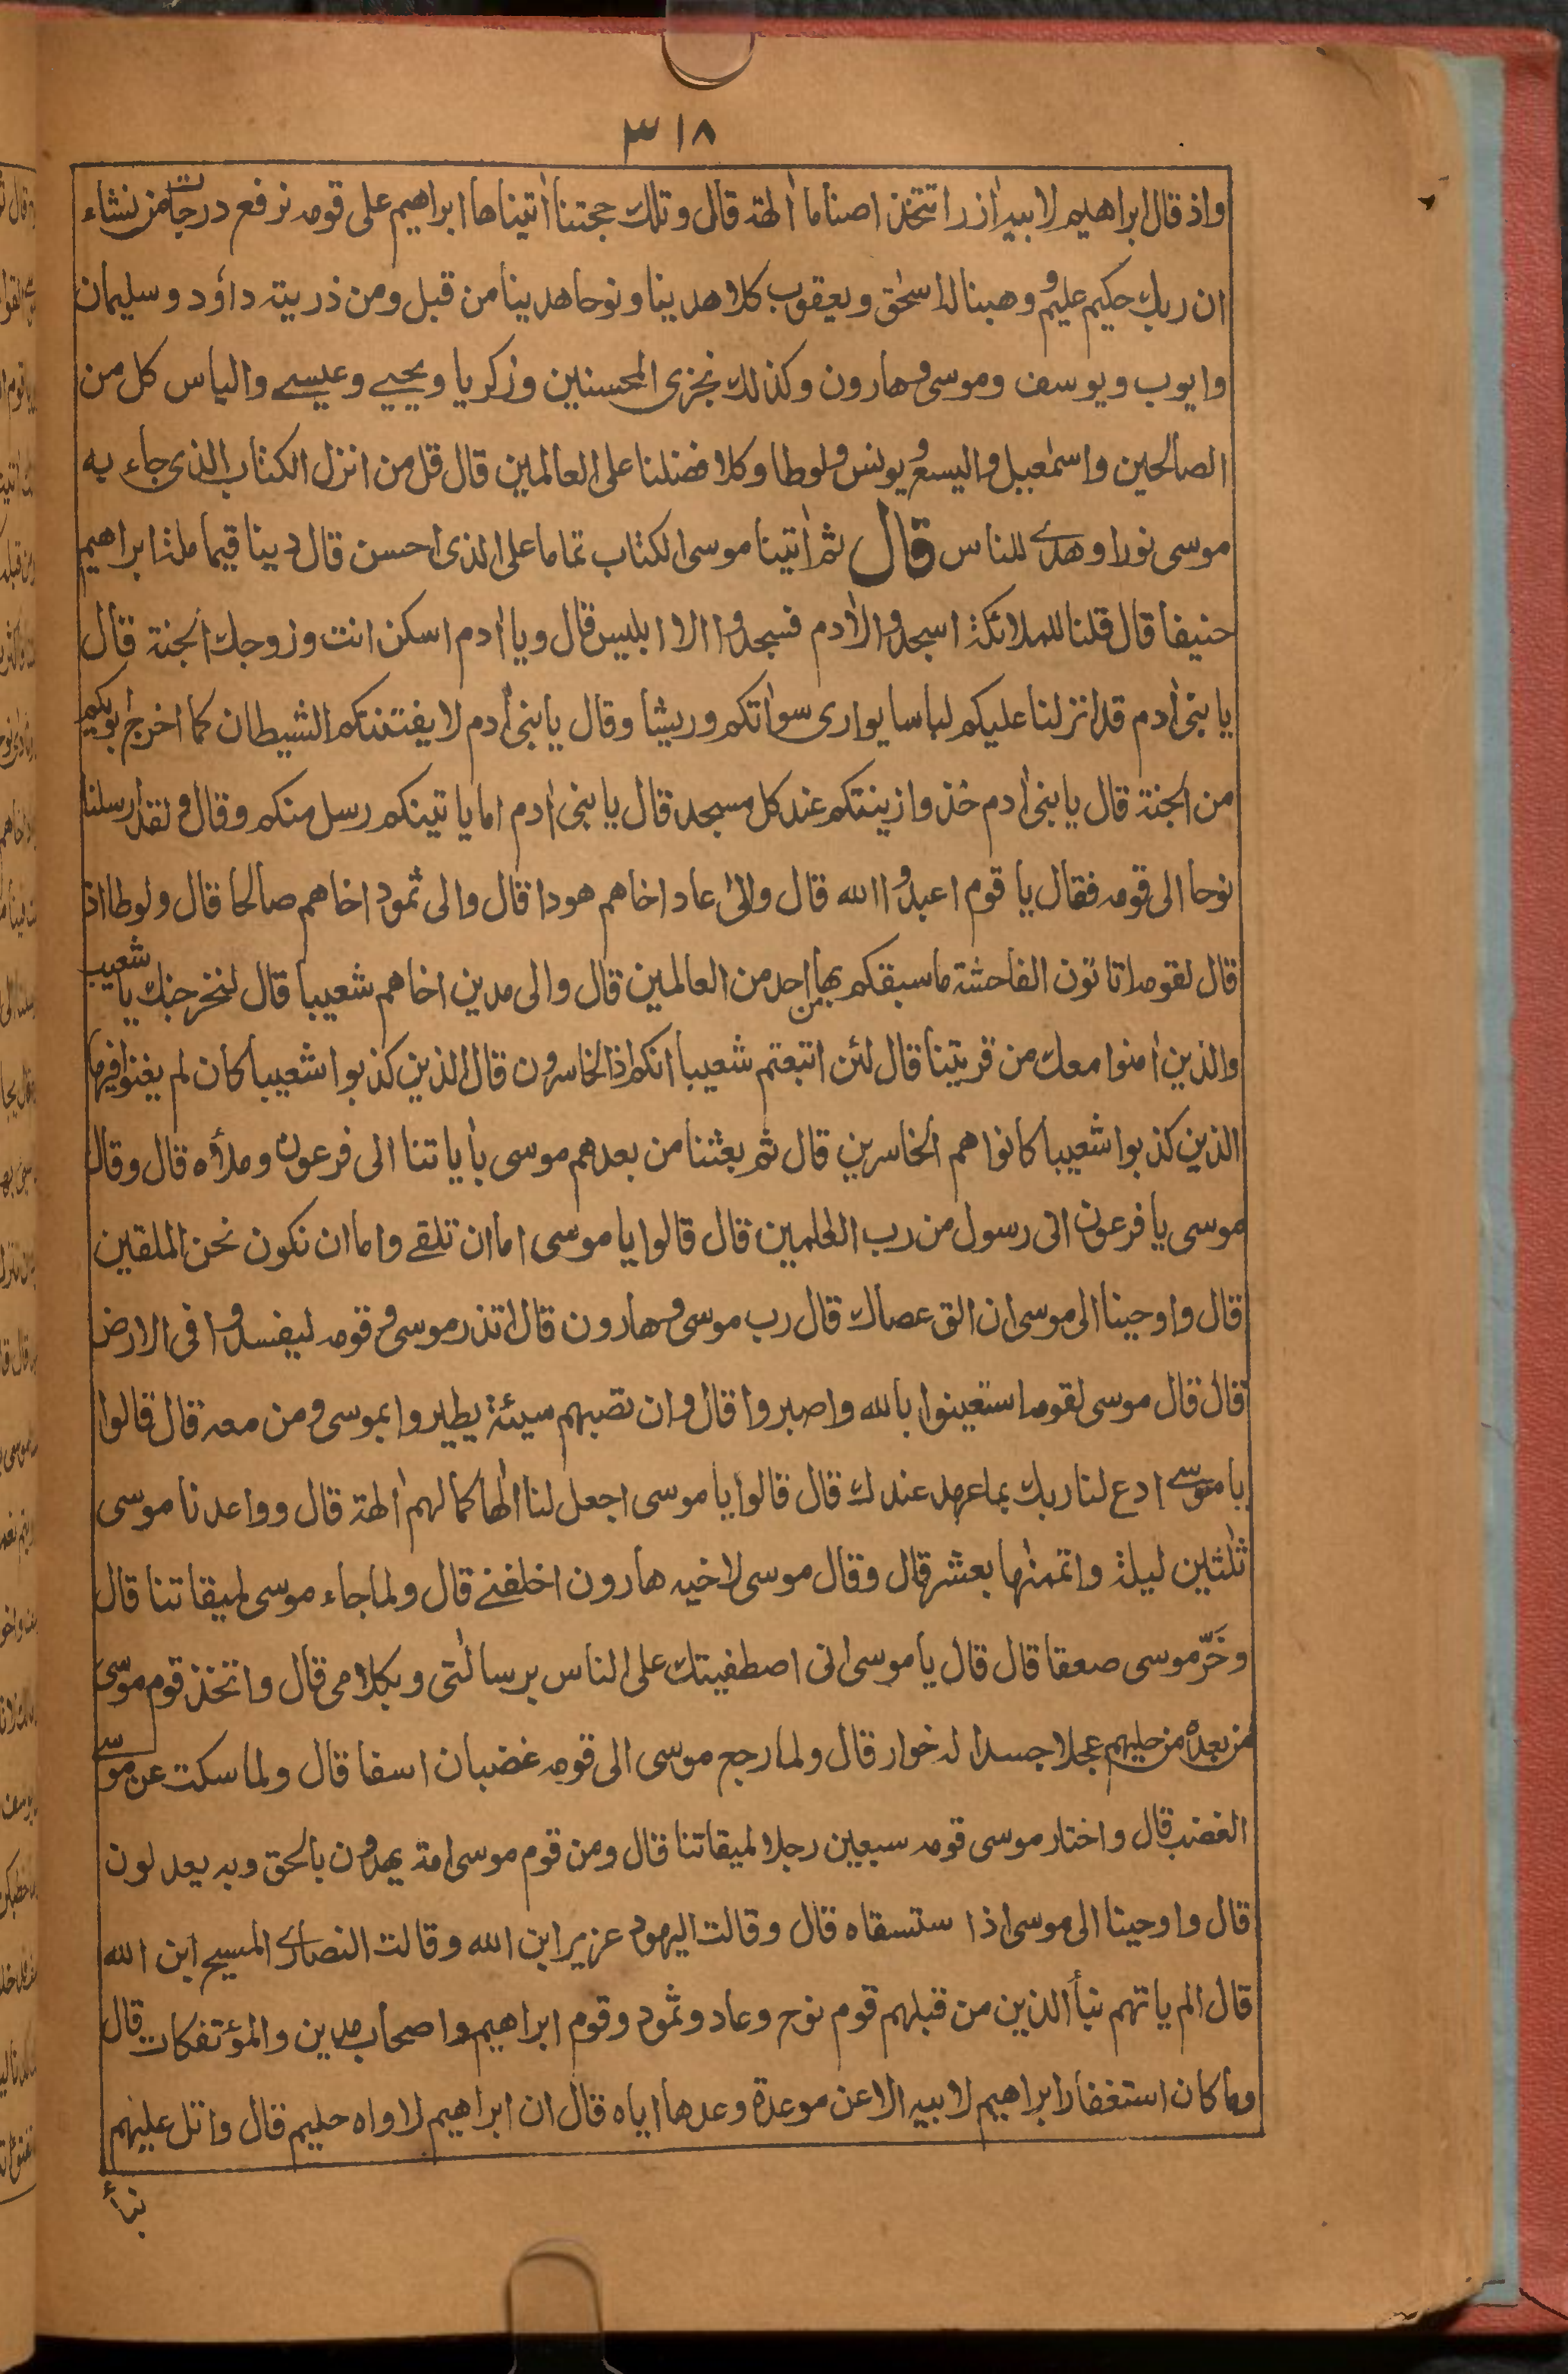 ٣١٨
واذ قال ابراهيم لابيه اٰزر اتتخذ اصناما اٰلهة قال وتلك حجتنا اٰتيناها ابراهيم على قومه نرفع درجات من نشاء
ان ربك حكيم عليم ووهبنا له اسحٰق ويعقوب كلا هدينا ونوحا هدينا من قبل ومن ذريته داؤد وسليمان
وايوب ويوسف وموسى وهارون وكذلك نجزى المحسنين وزكريا ويحيے وعيسے والياس كل من
الصالحين واسمٰعيل واليسع ويونس ولوطا وكلا فضلنا على العالمين قال قل من انزل الكتاب الذى جاء به
موسى نورا وهدى للناس قال ثم اٰتينا موسى الكتاب تماما على الذى احسن قال دينا قيما ملة ابراهيم
حنيفا قال قلنا للملائكة اسجدوا لاٰدم فسجدوا الا ابليس قال ويا اٰدم اسكن انت وزوجك الجنة قال
يا بنى اٰدم قد انزلنا عليكم لباسا يوارى سواٰتكم وريشا وقال يا بنى اٰدم لا يفتننكم الشيطان كما اخرج ابويكم
من الجنة قال يا بنى اٰدم خذوا زينتكم عند كل مسجد قال يا بنى اٰدم اما ياتينكم رسل منكم وقال ولقد ارسلنا
نوحا الى قومه فقال يا قوم اعبدوا الله قال والى عاد اخاهم هودا قال والى ثمود اخاهم صالحا قال ولوطا اذ
قال لقومه اتاتون الفاحشة ما سبقكم بها من احد من العالمين قال والى مدين اخاهم شعيبا قال لنخرجنك يا شعيب
والذين اٰمنوا معك من قريتنا قال لئن اتبعتم شعيبا انكم اذا لخاسرون قال الذين كذبوا شعيبا كان لم يغنوا فيها
الذين كذبوا شعيبا كانوا هم الخاسرين قال ثم بعثنا من بعدهم موسى باٰياتنا الى فرعون وملأه قال وقال
موسى يا فرعون انى رسول من رب العٰلمين قال قالوا يا موسى اما ان تلقے واما ان نكون نحن الملقين
قال واوحينا الى موسى ان الق عصاك قال رب موسى وهارون قال اتذر موسى وقومه ليفسدوا فى الارض
قال قال موسى لقومه استعينوا بالله واصبروا قال وان تصبهم سيئة يطيروا بموسى ومن معه قال قالوا
يا موسے ادع لنا ربك بما عهد عندك قال قالوا يا موسى اجعل لنا الٰها كما لهم اٰلهة قال وواعدنا موسى
ثلٰثين ليلة واتممنٰها بعشر قال وقال موسى لاخيه هارون اخلفنے قال ولما جاء موسى لميقاتنا قال
وخَرّ موسى صعقا قال قال يا موسى انى اصطفيتك على الناس برسالٰتى وبكلامى قال واتخذ قوم موسى
من بعده من حليهم عجلا جسدا له خوار قال ولما رجع موسى الى قومه غضبان اسفا قال ولما سكت عن موسے
الغضب قال واختار موسى قومه سبعين رجلا لميقاتنا قال ومن قوم موسى امة يهدون بالحق وبه يعدلون
قال واوحينا الى موسى اذا ستسقاه قال وقالت اليهود عزير ابن الله وقالت النصارى المسيح ابن الله
قال الم ياتهم نبأ الذين من قبلهم قوم نوح وعاد وثمود وقوم ابراهيم واصحاب مدين والمؤتفكات قال
وما كان استغفار ابراهيم لابيه الا عن موعدة وعدها اياه قال ان ابراهيم لاواه حليم قال واتل عليهم
نبأ